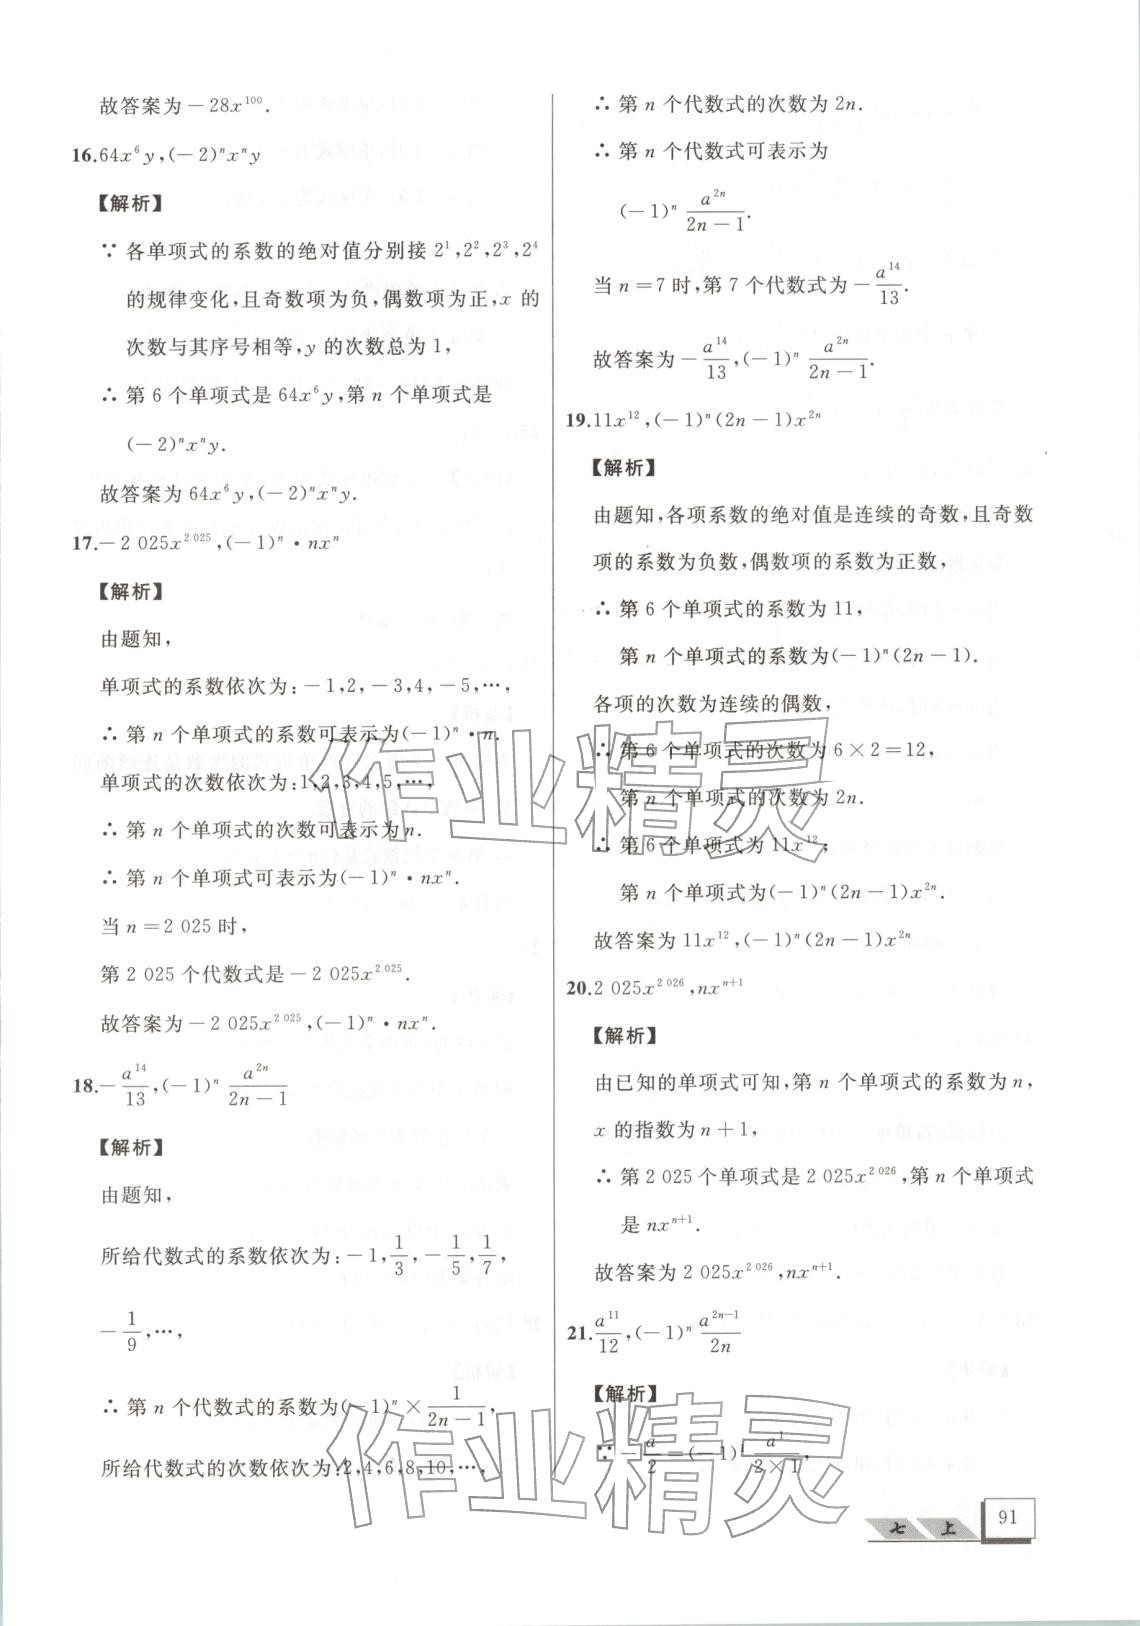 故答案为－28x¹⁰⁰.
16.64x⁶y,(－2)ⁿxⁿy
【解析】
∵ 各单项式的系数的绝对值分别接 2¹,2²,2³,2⁴
的规律变化,且奇数项为负,偶数项为正,x 的
次数与其序号相等,y 的次数总为 1,
∴ 第 6 个单项式是 64x⁶y,第 n 个单项式是
(－2)ⁿxⁿy.
故答案为 64x⁶y,(－2)ⁿxⁿy.
17.－2 025x^{2 025},(－1)ⁿ·nxⁿ
【解析】
由题知,
单项式的系数依次为:－1,2,－3,4,－5,…,
∴ 第 n 个单项式的系数可表示为(－1)ⁿ·n.
单项式的次数依次为:1,2,3,4,5,…,
∴ 第 n 个单项式的次数可表示为 n.
∴ 第 n 个单项式可表示为(－1)ⁿ·nxⁿ.
当 n＝2 025 时,
第 2 025 个代数式是－2 025x^{2 025}.
故答案为－2 025x^{2 025},(－1)ⁿ·nxⁿ.
18.－\frac{a^{14}}{13},(－1)ⁿ \frac{a^{2n}}{2n－1}
【解析】
由题知,
所给代数式的系数依次为:－1,\frac{1}{3},－\frac{1}{5},\frac{1}{7},
－\frac{1}{9},…,
∴ 第 n 个代数式的系数为(－1)ⁿ×\frac{1}{2n－1},
所给代数式的次数依次为:2,4,6,8,10,…,
∴ 第 n 个代数式的次数为 2n.
∴ 第 n 个代数式可表示为
(－1)ⁿ \frac{a^{2n}}{2n－1}.
当 n＝7 时,第 7 个代数式为－\frac{a^{14}}{13}.
故答案为－\frac{a^{14}}{13},(－1)ⁿ \frac{a^{2n}}{2n－1}.
19.11x¹²,(－1)ⁿ(2n－1)x^{2n}
【解析】
由题知,各项系数的绝对值是连续的奇数,且奇数
项的系数为负数,偶数项的系数为正数,
∴ 第 6 个单项式的系数为 11,
第 n 个单项式的系数为(－1)ⁿ(2n－1).
各项的次数为连续的偶数,
∴ 第 6 个单项式的次数为 6×2＝12,
第 n 个单项式的次数为 2n.
∴ 第 6 个单项式为 11x¹²;
第 n 个单项式为(－1)ⁿ(2n－1)x^{2n}.
故答案为 11x¹²,(－1)ⁿ(2n－1)x^{2n}
20.2 025x^{2 026},nx^{n+1}
【解析】
由已知的单项式可知,第 n 个单项式的系数为 n,
x 的指数为 n＋1,
∴ 第 2 025 个单项式是 2 025x^{2 026},第 n 个单项式
是 nx^{n+1}.
故答案为 2 025x^{2 026},nx^{n+1}.
21.\frac{a^{11}}{12},(－1)ⁿ \frac{a^{2n－1}}{2n}
【解析】
∵ －\frac{a}{2}＝(－1)¹ \frac{a¹}{2×1},
作业精灵
作业精灵
七 上 91